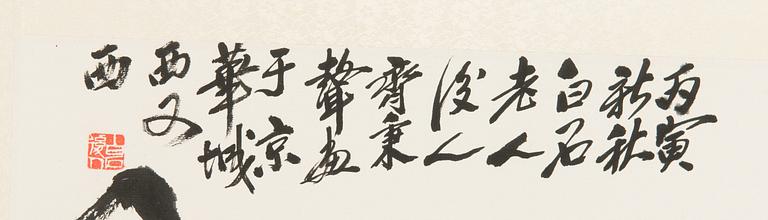 丙寅
秋秋
白石
老人
後人
齊秉
聲畫
于京
華城
西又
西